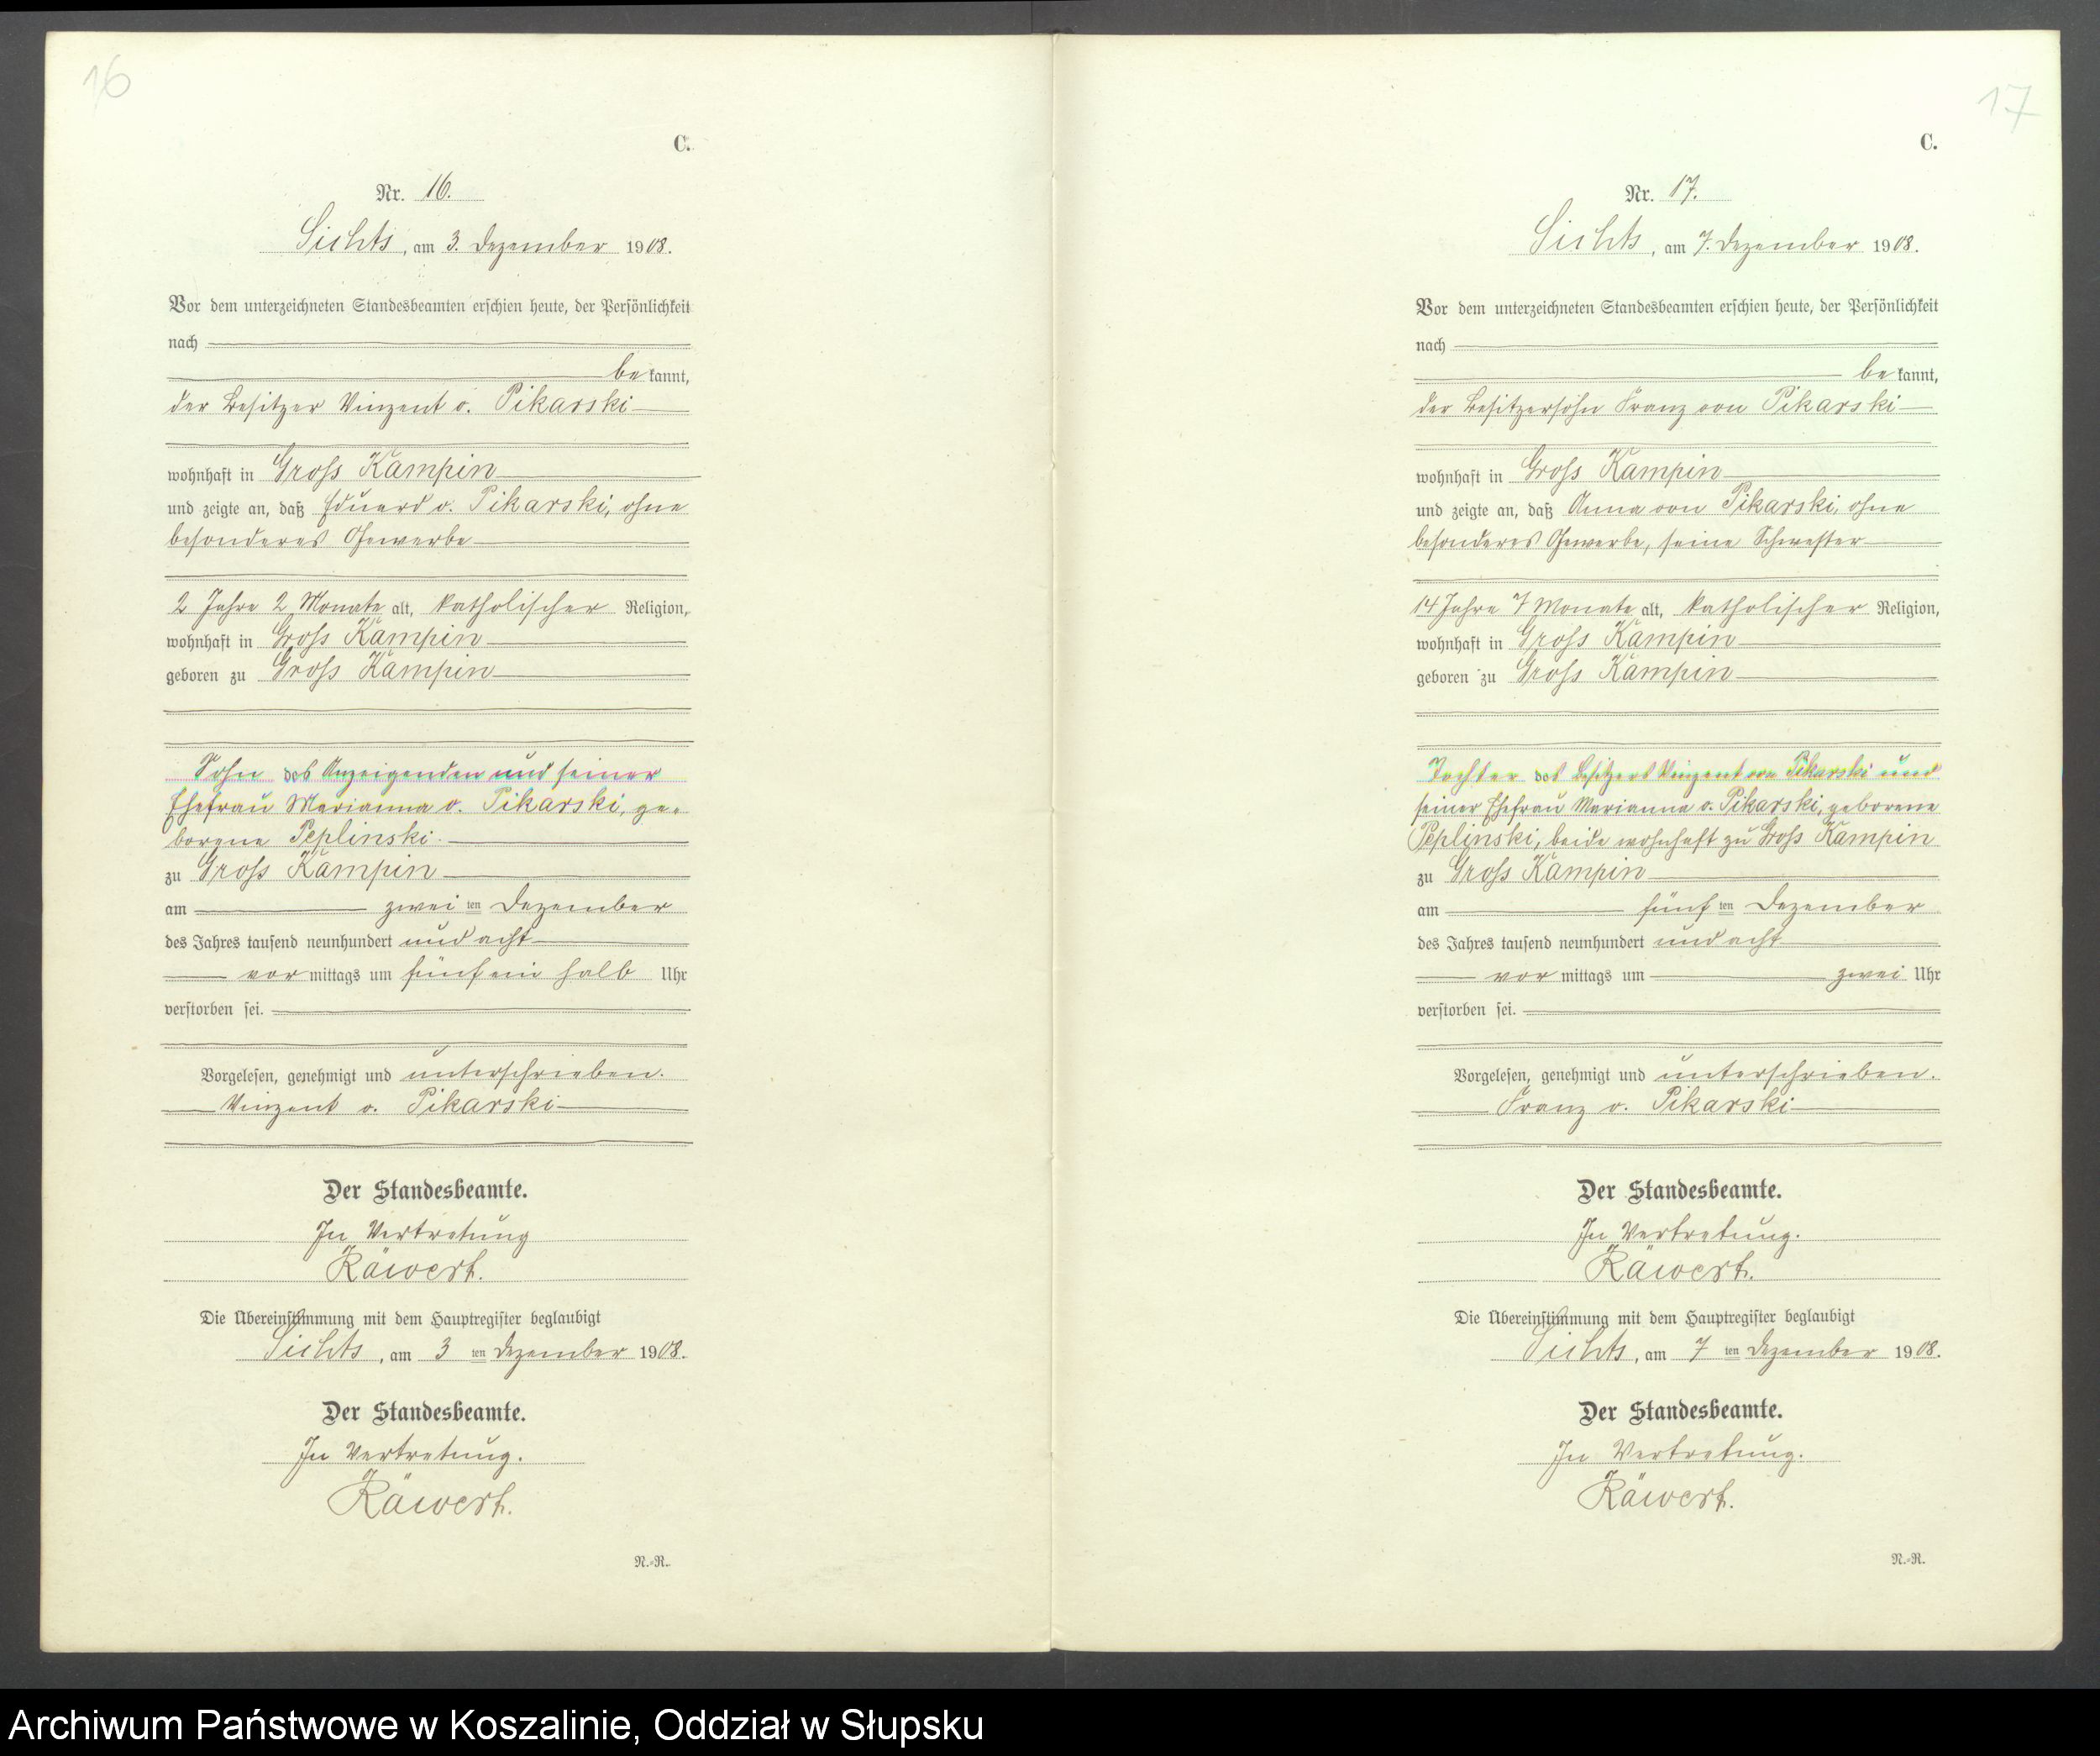 16
C.
Nr. 16.
Sichts, am 3. Dezember 1908.
Vor dem unterzeichneten Standesbeamten erschien heute, der Persönlichkeit
nach
be kannt,
der Besitzer Vinzent v. Pikarski
wohnhaft in Gross Kampin
und zeigte an, daß Eduard v. Pikarski, ohne
besonderes Gewerbe
2 Jahre 2 Monate alt, katholischer Religion,
wohnhaft in Gross Kampin
geboren zu Gross Kampin
Sohn des Anzeigenden und seiner
Ehefrau Marianna v. Pikarski, ge-
borene Peplinski.
zu Gross Kampin
am zwei ten Dezember
des Jahres tausend neunhundert und acht
vor mittags um fünf ein halb Uhr
verstorben sei.
Vorgelesen, genehmigt und unterschrieben.
Vinzent v. Pikarski
Der Standesbeamte.
In Vertretung
Räwert.
Die Übereinstimmung mit dem Hauptregister beglaubigt
Sichts, am 3 ten Dezember 1908.
Der Standesbeamte.
In Vertretung.
Räwert.
N.-R.
17
C.
Nr. 17.
Sichts, am 7. Dezember 1908.
Vor dem unterzeichneten Standesbeamten erschien heute, der Persönlichkeit
nach
be kannt,
der Besitzersohn Franz von Pikarski
wohnhaft in Gross Kampin
und zeigte an, daß Anna von Pikarski, ohne
besonderes Gewerbe, seine Schwester
14 Jahre 7 Monate alt, katholischer Religion,
wohnhaft in Gross Kampin
geboren zu Gross Kampin
Tochter des Besitzers Vinzent von Pikarski und
seiner Ehefrau Marianna v. Pikarski, geborene
Peplinski, beide wohnhaft zu Gross Kampin
zu Gross Kampin
am fünf ten Dezember
des Jahres tausend neunhundert und acht
vor mittags um zwei Uhr
verstorben sei.
Vorgelesen, genehmigt und unterschrieben.
Franz v. Pikarski
Der Standesbeamte.
In Vertretung.
Räwert.
Die Übereinstimmung mit dem Hauptregister beglaubigt
Sichts, am 7 ten Dezember 1908.
Der Standesbeamte.
In Vertretung.
Räwert.
N.-R.
Archiwum Państwowe w Koszalinie, Oddział w Słupsku